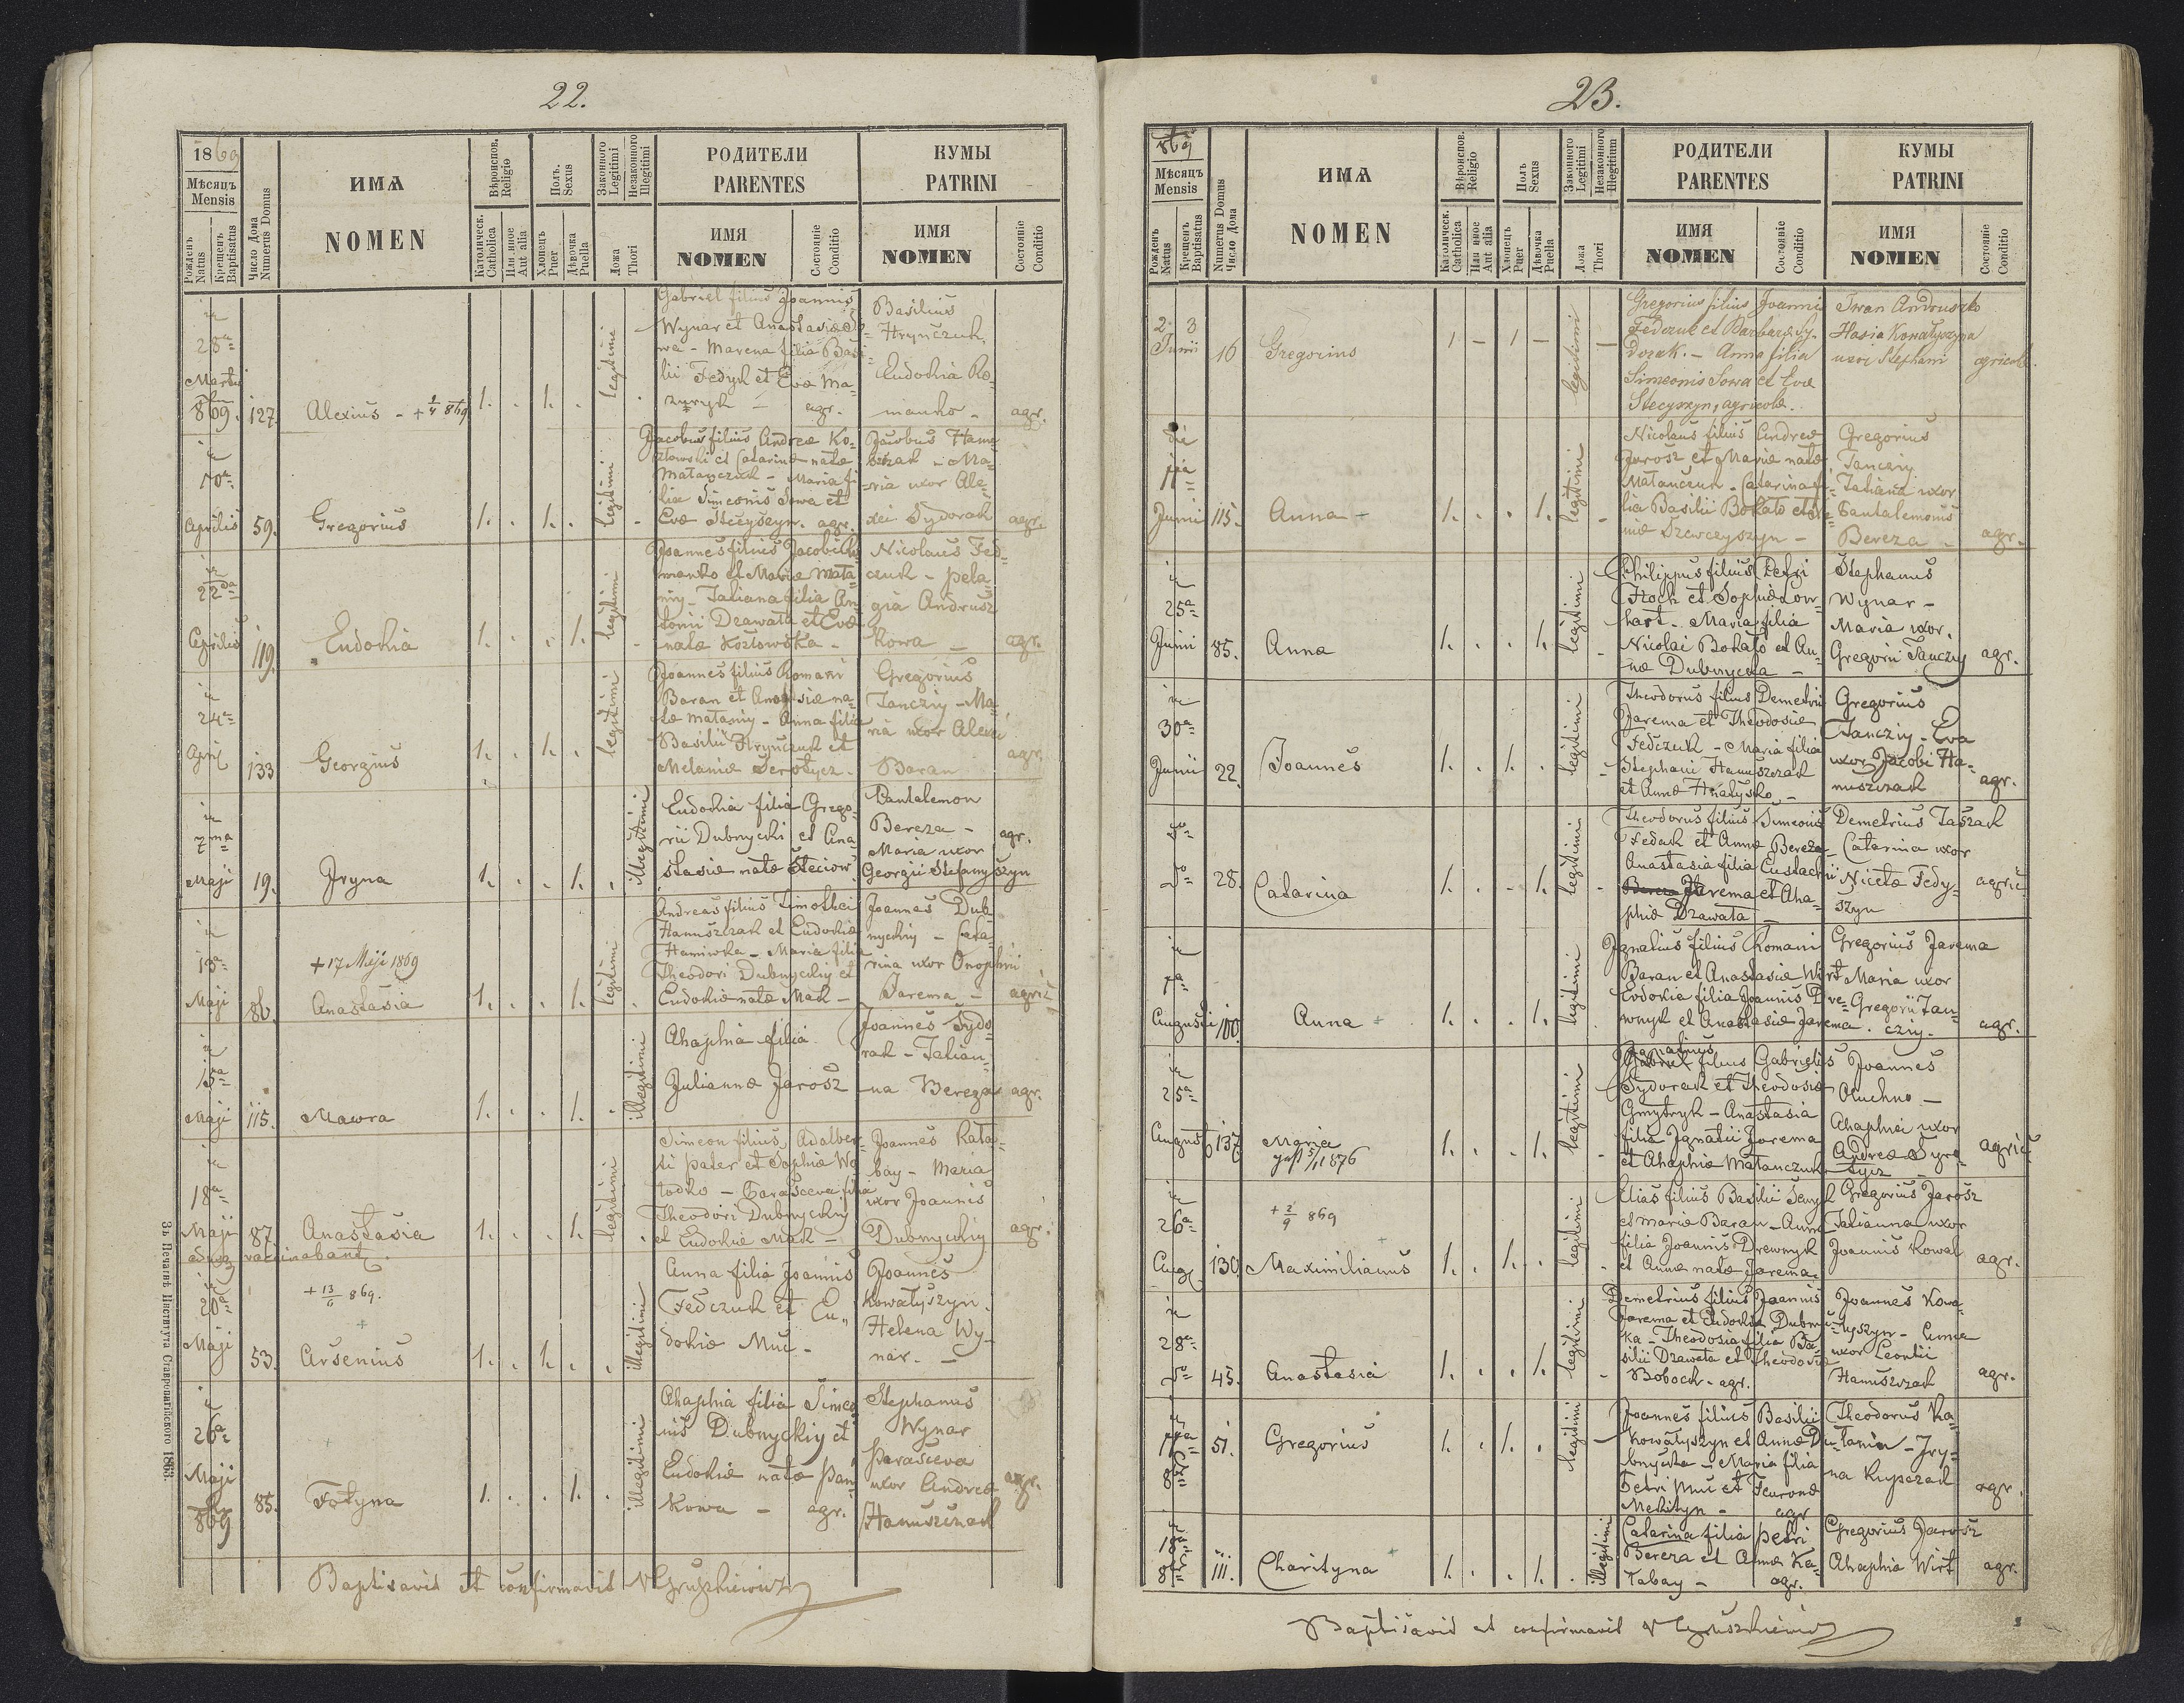 22.
1869
Мѣсяцъ
Mensis
Рожденъ
Natus
Крещенъ
Baptisatus
Число Дома
Numerus Domus
ИМѦ
NOMEN
Вѣроиспов.
Religio
Католическ.
Catholica
Или иное
Aut alia
Полъ.
Sexus
Хлопецъ
Puer
Дѣвочка
Puella
Законного
Legitimi
Незаконного
Illegitimi
Ложа
Thori
РОДИТЕЛИ
PARENTES
ИМЯ
NOMEN
Состояніе
Conditio
КУМЫ
PATRINI
ИМЯ
NOMEN
Состояніе
Conditio
28a
Martii
869. 127. Alexius - + 869 1. . 1. . legitimi
Gabriel filius Joannis
Wynar et Anastasiæ
- Marena filia Basi
lii Fedyk et Evæ Ma=
zuryk - agr.
Basilius
Hrynczuk.
Eudokia Ro=
manko - agr.
in
10a
Aprilis 59. Gregorius 1. . 1. . legitimi
Jacobus filius Andreæ Ko=
złowski et Catarinæ natæ
Matanczuk - Maria fi=
lia Simeonis Sowa et
Evæ Stecyszyn. agr.
Jacobus Hanu
szczak - Ma=
ria uxor Ale=
xei Sydorak agr.
in
22da
Aprilis 119. Eudokia 1. . . 1. legitimi
Joannes filius Jacobi Ro
manko et Mariæ Mata=
niy - Tatiana filia An=
tonii Drawata et Evæ
natæ Kozłowska -
Nicolaus Fed=
czuk - Pela=
gia Andrusz
kowa - agr.
in
24a
April 133 Georgius 1. . 1. . legitimi
Joannes filius Romani
Baran et Anastasiæ na=
tæ Mataniy - Anna filia
Basilii Hrynczuk et
Melaniæ Serotycz.
Gregorius
Tancziy - Ma=
ria uxor Alexii
Baran agr.
in
7ma
Maji 19. Jryna 1. . . 1. . illegitimi
Eudokia filia Grego=
rii Dubnycki et Ana
stasiæ natæ Steciow
Pantalemon
Bereza - agr.
Maria uxor
Georgii Stefanyszyn
in
13a
Maji 86. + 17 Maji 1869
Anastasia 1. . . 1. legitimi
Andreas filius Timothei
Hanuszczak et Eudokiæ
Haniwka - Maria filia
Theodori Dubnyckiy et
Eudokiæ natæ Mak -
Joannes Dub
nyckiy - Cata=
rina uxor Onophrii
Jarema - agric
in
15a
Maji 115. Mawra 1. . . 1. . illegitimi
Ahaphia filia
Julianæ Jarosz
Joannes Sydo
rak - Tatian=
na Bereza agr.
in
18a
Maji 87. Anastasia 1. . . 1. legitimi
Simeon filius Adalber=
ti Pater et Sophiæ Wo
todko - Parasceva filia
Theodori Dubnyckiy
et Eudokiæ Mak -
Joannes Kata=
bay - Maria
uxor Joannis
Dubnyckiy agr.
adhuc vaccinabant.
in
20a
Maji 53. + 13/6 869.
Arsenius 1. . 1. . . illegitimi
Anna filia Joannis
Fedczuk et Eu,,
dokiæ Muc -
Joannes
Kowatyszyn.
Helena Wy-
nar. -
in
26a
Maji
869 85. Fotyna 1. . . 1. . illegitimi
Ahaphia filia Simeo
nis Dubnyckiy et
Eudokiæ natæ Pan=
kowa - agr.
Stephanus
Wynar
Parasceva
uxor Andreæ
Hanuszczak agr.
Baptisavit et confirmavit N Gruszkiewicz
Зъ Печатнѣ Института Ставропигійского 1863.
23.
869
Мѣсяцъ
Mensis
Рожденъ
Natus
Крещенъ
Baptisatus
Numerus Domus
Число Дома
ИМѦ
NOMEN
Вѣроиспов.
Religio
Католическ.
Catholica
Или иное
Aut alia
Полъ
Sexus
Хлопецъ
Puer
Дѣвочка
Puella
Законного
Legitimi
Незаконного
Illegitimi
Ложа
Thori
РОДИТЕЛИ
PARENTES
ИМЯ
NOMEN
Состояніе
Conditio
КУМЫ
PATRINI
ИМЯ
NOMEN
Состояніе
Conditio
2 3
Junii 16 Gregorius 1 - 1 - legitimi -
Gregorius filius Joannis
Fedczuk et Barbaræ Sy-
dorak. - Anna filia
Simeonis Sowa et Evæ
Stecyszyn, agricolæ.
Iwan Andruszko
Hasia Kowatyszyna
uxor Stephani agricolæ
die
11a
Junii 115. Anna + 1. . . 1. legitimi -
Nicolaus filius Andreæ
Jarosz et Mariæ natæ
Matanczuk - Catarina fi=
lia Basilii Bokało et
Szewczyszyn -
Gregorius
Tancziy
Tatiana uxor
Pantalemonis
Bereza - agr.
in
25a
Junii 85. Anna 1. . . 1. legitimi -
Philippus filius Petri
Hoch et Sophiæ Low=
kart - Maria filia
Nicolai Bokało et An=
næ Dubnycka -
Stephanus
Wynar -
Maria uxor.
Gregorii Tancziy agr.
in
30a
Junii 22. Joannes 1. . 1. . legitimi -
Theodorus filius Demetrii
Jarema et Theodosiæ
Fedczuk - Maria filia
Stephani Hanuszczak
et Annæ Hnatysko -
Gregorius
Tancziy - Eva
uxor Jacobi Ha=
nuszczak agr.
28. Catarina 1. . - 1. legitimi -
Theodorus filius Simeonis
Fedak et Annæ Bereza
Anastasia filia Eustachii
Bereza Jarema et Aha=
phiæ Drawata -
Demetrius Taszak
Catarina uxor
Nicetæ Fedy=
szyn agric
in
1a
Augusti 100. Anna + 1. . . 1. legitimi
Ignatius filius Romani
Baran et Anastasiæ Wirt
Eudokia filia Joannis Dre=
wnyk et Anastasiæ Jarema.
Gregorius Jarema
Maria uxor
Gregorii Tan=
cziy. agr.
in
25a
August 137 Maria
1876 1. . . 1. legitimi -
Ignatius
Gabriel filius Gabrielis
Sydorak et Theodosiæ
Gmytryk - Anastasia
filia Ignatii Jarema
et Ahaphiæ Matanczuk
Joannes
Oluchno -
Ahaphia uxor
Andreæ Syro=
tycz agric
in
26a
Aug 130. + 2/9 869
Maximilianus 1. . 1. . legitimi -
Elias filius Basilii Senyk
et Mariæ Baran - Anna
filia Joannis Drewnyk
et Annæ natæ Jarema.
Gregorius Jarosz
Tatianna uxor
Joannis Kowal agr.
in
28a
45. Anastasia 1. . . 1. legitimi -
Demetrius filius Joannis
Jarema et Eudokiæ Dubnic
ka - Theodosia filia Ba
silii Drawata et Theodosiæ
Boboch - agr.
Joannes Kowa=
tyszyn - Anna
uxor Leontii
Hanuszczak agr.
in
11a
8bris 51. Gregorius 1. . 1. . legitimi -
Joannes filius Basilii
Kowatyszyn et Annæ Du
bnycka - Maria filia
Petri Muc et Feuronæ
Mekityn - agr
Theodorus Ka=
tania - Jry=
na Kupczak agr.
in
18a
8bris 111. Charityna + 1. . . 1. . illegitimi
Catarina filia Petri
Bereza et Annæ Ka=
tabay - agr.
Gregorius Jarosz
Ahaphia Wirt agr.
Baptisavit et confirmavit N Gruszkiewicz